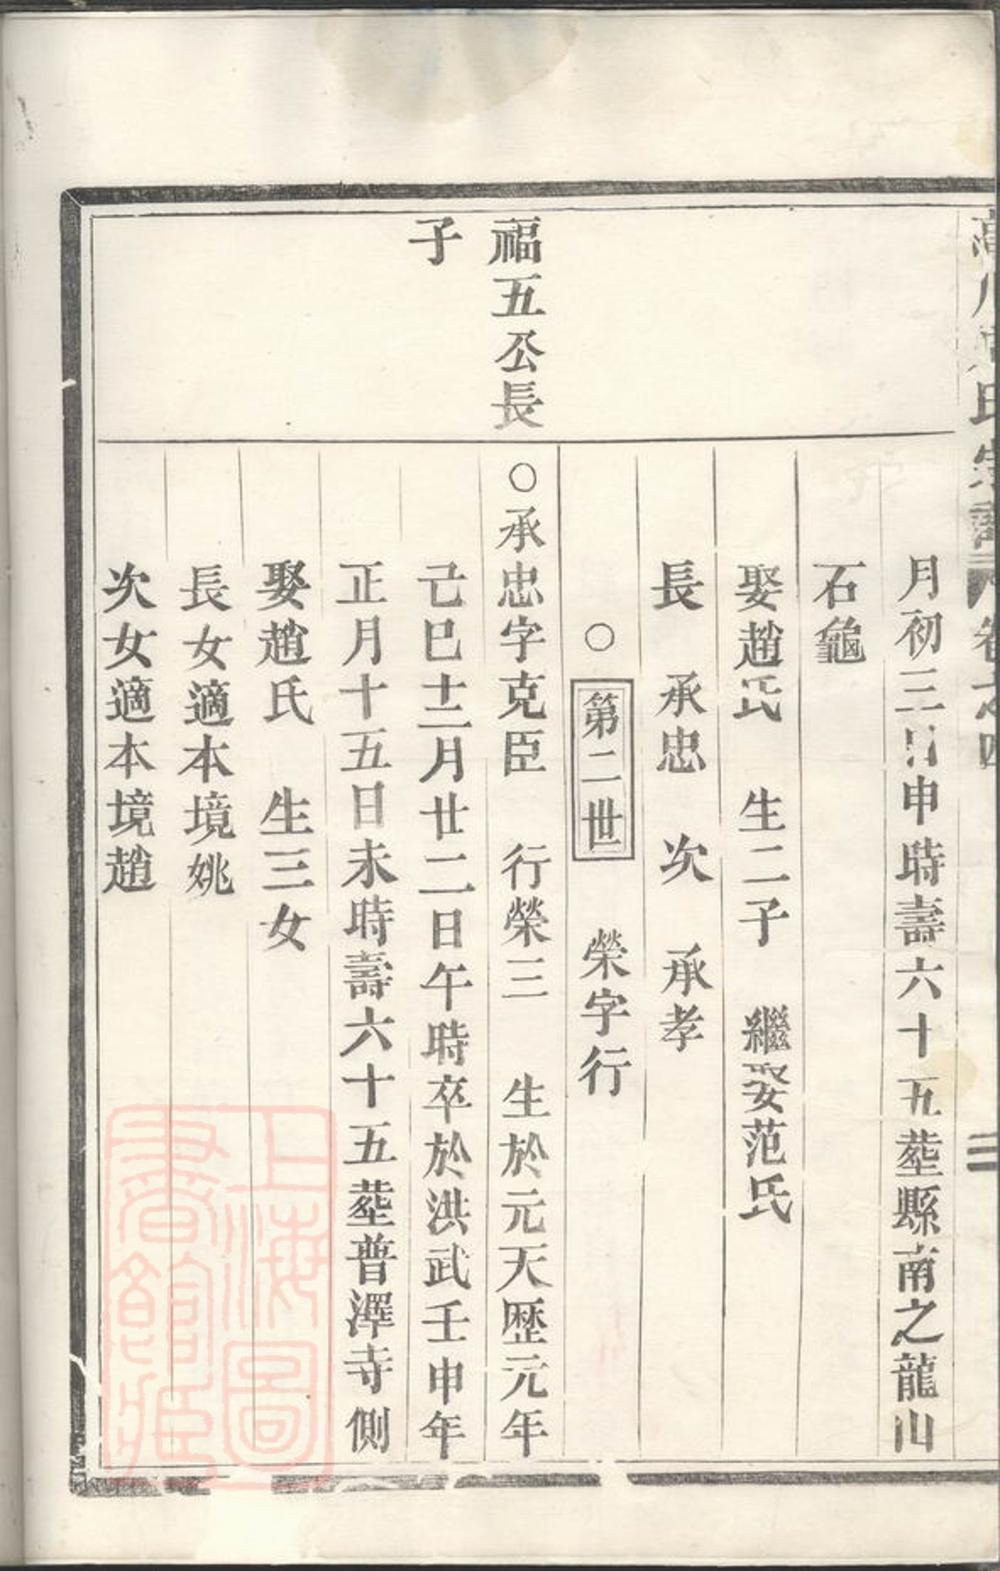 氏宗譜 卷之四 三
月初三日申時壽六十五塟縣南之龍山
石龜
娶趙氏 生二子 繼娶范氏
長 承忠 次 承孝
○ 第二世 榮字行
福五公長
子
○承忠字克臣 行榮三 生於元天歷元年
己巳十二月廿二日午時卒於洪武壬申年
正月十五日未時壽六十五塟普澤寺側
娶趙氏 生三女
長女適本境姚
次女適本境趙
上海圖
書館藏